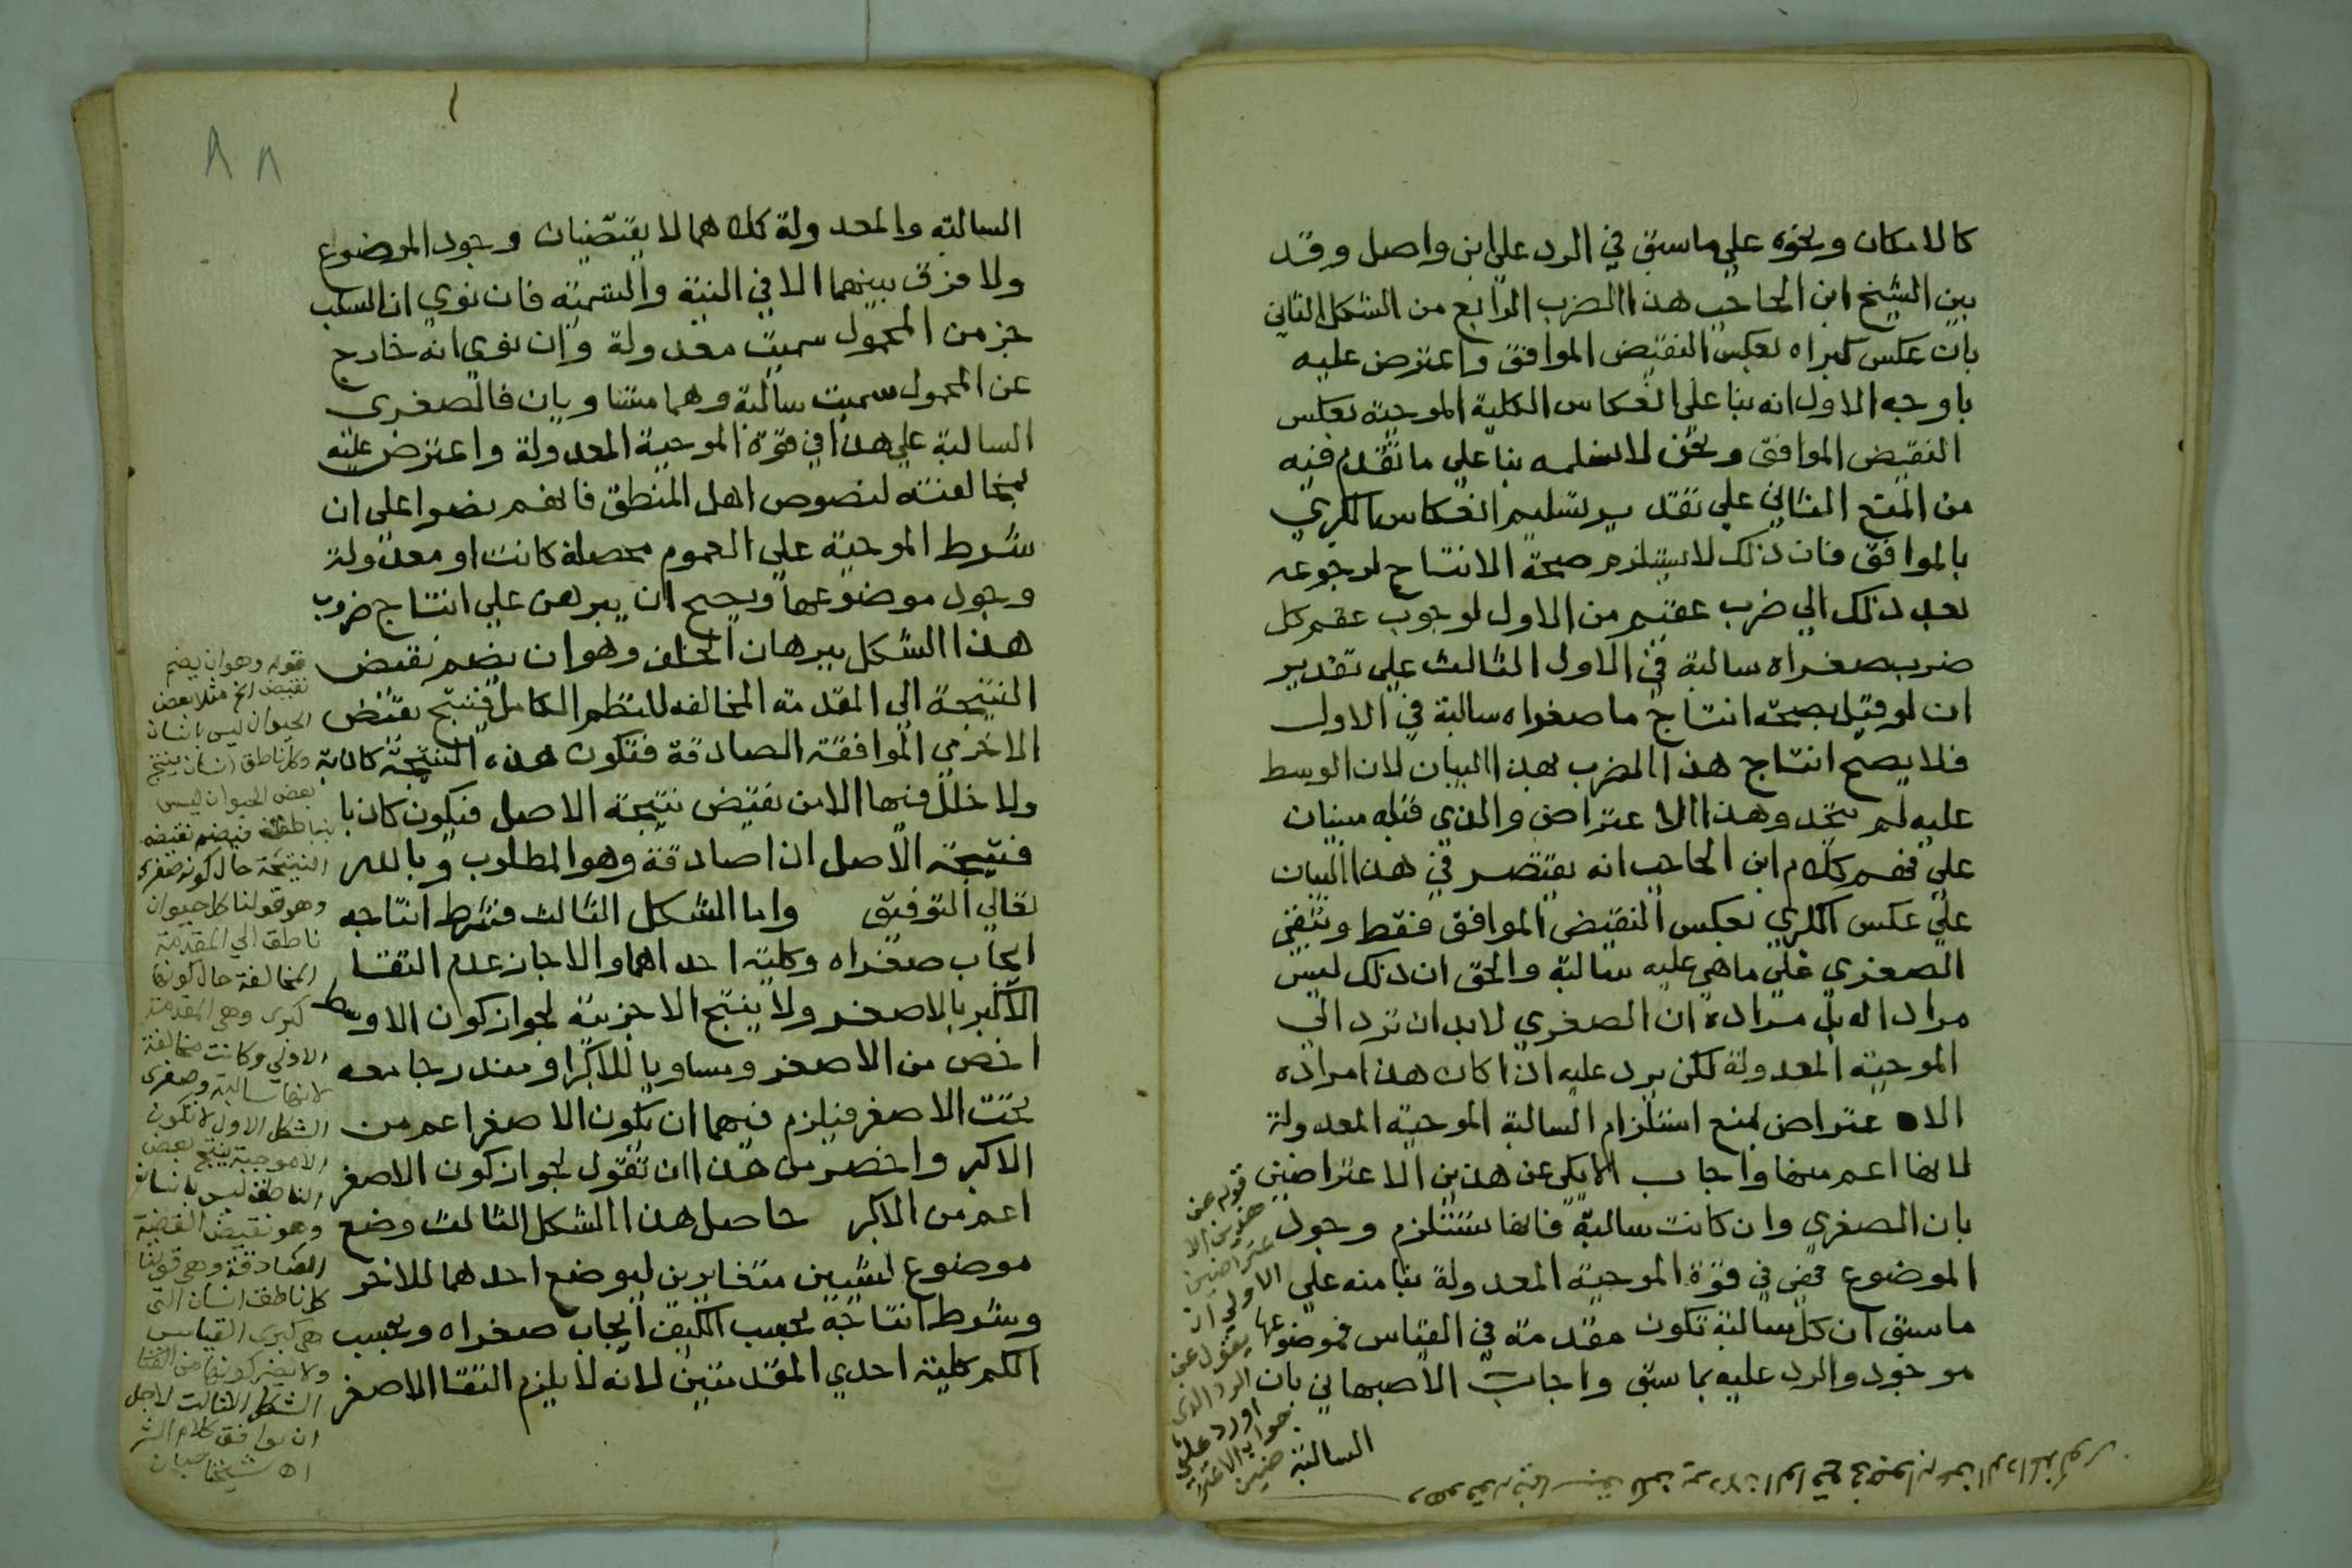 كالامكان ونحوه علي ما سبق في الرد علي ابن واصل وقد
بين الشيخ ابن الحاجب هذا الضرب الرابع من الشكل الثاني
بان عكس كبراه بعكس النقيض الموافق واعترض عليه
باوجه الاول انه بنا علي انعكاس الكلية الموجبة بعكس
النقيض الموافق ونحن لا نسلمه بنا علي ما تقدم فيه
من المنع الثاني علي تقدير تسليم انعكاس الكبري
بالموافق فان ذلك لا يستلزم صحة الانتاج لرجوعه
بعد ذلك الي ضرب عقيم من الاول لوجوب عقم كل
ضرب صغراه سالبة في الاول الثالث علي تقدير
ان لو قيل بصحة انتاج ما صغراه سالبة في الاول
فلا يصح انتاج هذا الضرب بهذا البيان لان الوسط
عليه لم يتحد وهذا الاعتراض والذي قبله مبنيان
علي فهم كلام ابن الحاجب انه يقتصر في هذا البيان
علي عكس الكبري بعكس النقيض الموافق فقط وتبقي
الصغري علي ما هي عليه سالبة والحق ان ذلك ليس
مرادا له بل مراده ان الصغري لا بد ان ترد الي
الموجبة المعدولة لكن يرد عليه اذا كان هذا مراده
الاعتراض بمنع استلزام السالبة الموجبة المعدولة
لانها اعم منها واجاب الايكي عن هذين الاعتراضين
بان الصغري وان كانت سالبة فانها تستلزم وجود
الموضوع فهي في قوة الموجبة المعدولة بنا منه علي
ما سبق ان كل سالبة تكون مقدمة في القياس فموضوعها
موجود والرد عليه بما سبق واجاب الاصبهاني بان
السالبة
قوله عن
هذين الا
عتراضين
الاولي ان
يقول عن
الرد الذي
اورد علي
جواب الاعترا
ضين
٨٨
السالبة والمعدولة كلاهما لا يقتضيان وجود الموضوع
ولا فرق بينهما الا في النية والتسمية فان نوي ان السلب
جز من المحمول سميت معدولة وان نوي انه خارج
عن المحمول سميت سالبة وهما متساويان فالصغري
السالبة علي هذا في قوة الموجبة المعدولة واعترض عليه
بمخالفته لنصوص اهل المنطق فانهم نصوا علي ان
شرط الموجبة علي العموم محصلة كانت او معدولة
وجود موضوعها ويصح ان يبرهن علي انتاج ضروب
هذا الشكل ببرهان الخلف وهو ان يضم نقيض
النتيجة الي المقدمة المخالفه للنظم الكامل فينتج نقيض
الاخري الموافقة الصادقة فتكون هذه النتيجة كاذبة
ولا خلل فيها الا من نقيض نتيجة الاصل فيكون كاذبا
فنتيجة الاصل اذا صادقة وهو المطلوب وبالله
تعالي التوفيق واما الشكل الثالث فشرط انتاجه
ايجاب صغراه وكلية احداهما والا جاز عدم التقا
الاكبر بالاصغر ولا ينتج الا جزيية لجواز كون الاوسط
اخص من الاصغر ومساويا للاكبر او مندرجا معه
تحت الاصغر فيلزم فيهما ان يكون الاصغر اعم من
الاكبر واخصر من هذا ان تقول لجواز كون الاصغر
اعم من الاكبر حاصل هذا الشكل الثالث وضع
موضوع لشيين متغايرين ليوضع احدهما للاخر
وشرط انتاجه بحسب الكيف ايجاب صغراه وبحسب
الكم كلية احدي المقدمتين لانه لا يلزم التقا الاصغر
قوله وهو ان يضم
نقيض الخ مثلا بعض
الحيوان ليس انسان
وكل ناطق انسان ينتج
بعض الحيوان ليس
بناطق فيضم نقيضه
النتيجة حال كونه صغري
وهو قولنا كل حيوان
ناطق الي المقدمة
المخالفة حال كونها
كبري وهي المقدمة
الاولي وكانت مخالفة
لانها سالبة وصغري
الشكل الاول لا تكون
الا موجبة ينتج بعض
الناطق ليس بانسان
وهو نقيض القضية
الصادقة وهي قولنا
كل ناطق انسان التي
هي كبري القياس
ولا يضر كونها من
الشكل الثالث لاجل
ان يوافق كلام الش
اه شيخنا صبان